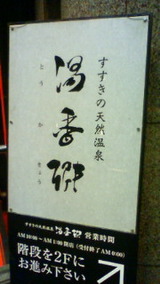 すすきの天然温泉
湯香郷
とう か きょう
すすきの天然温泉 湯香郷 営業時間
階段を2Fに
お進み下さい